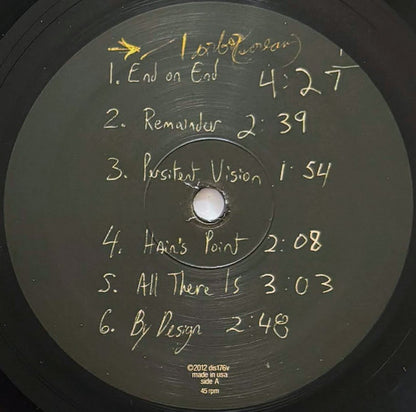 1. End on End 4:27
2. Remainder 2:39
3. Persitent Vision 1:54
4. Hain's Point 2:08
5. All There Is 3:03
6. By Design 2:48
©2012 dis176v
made in usa
side A
45 rpm